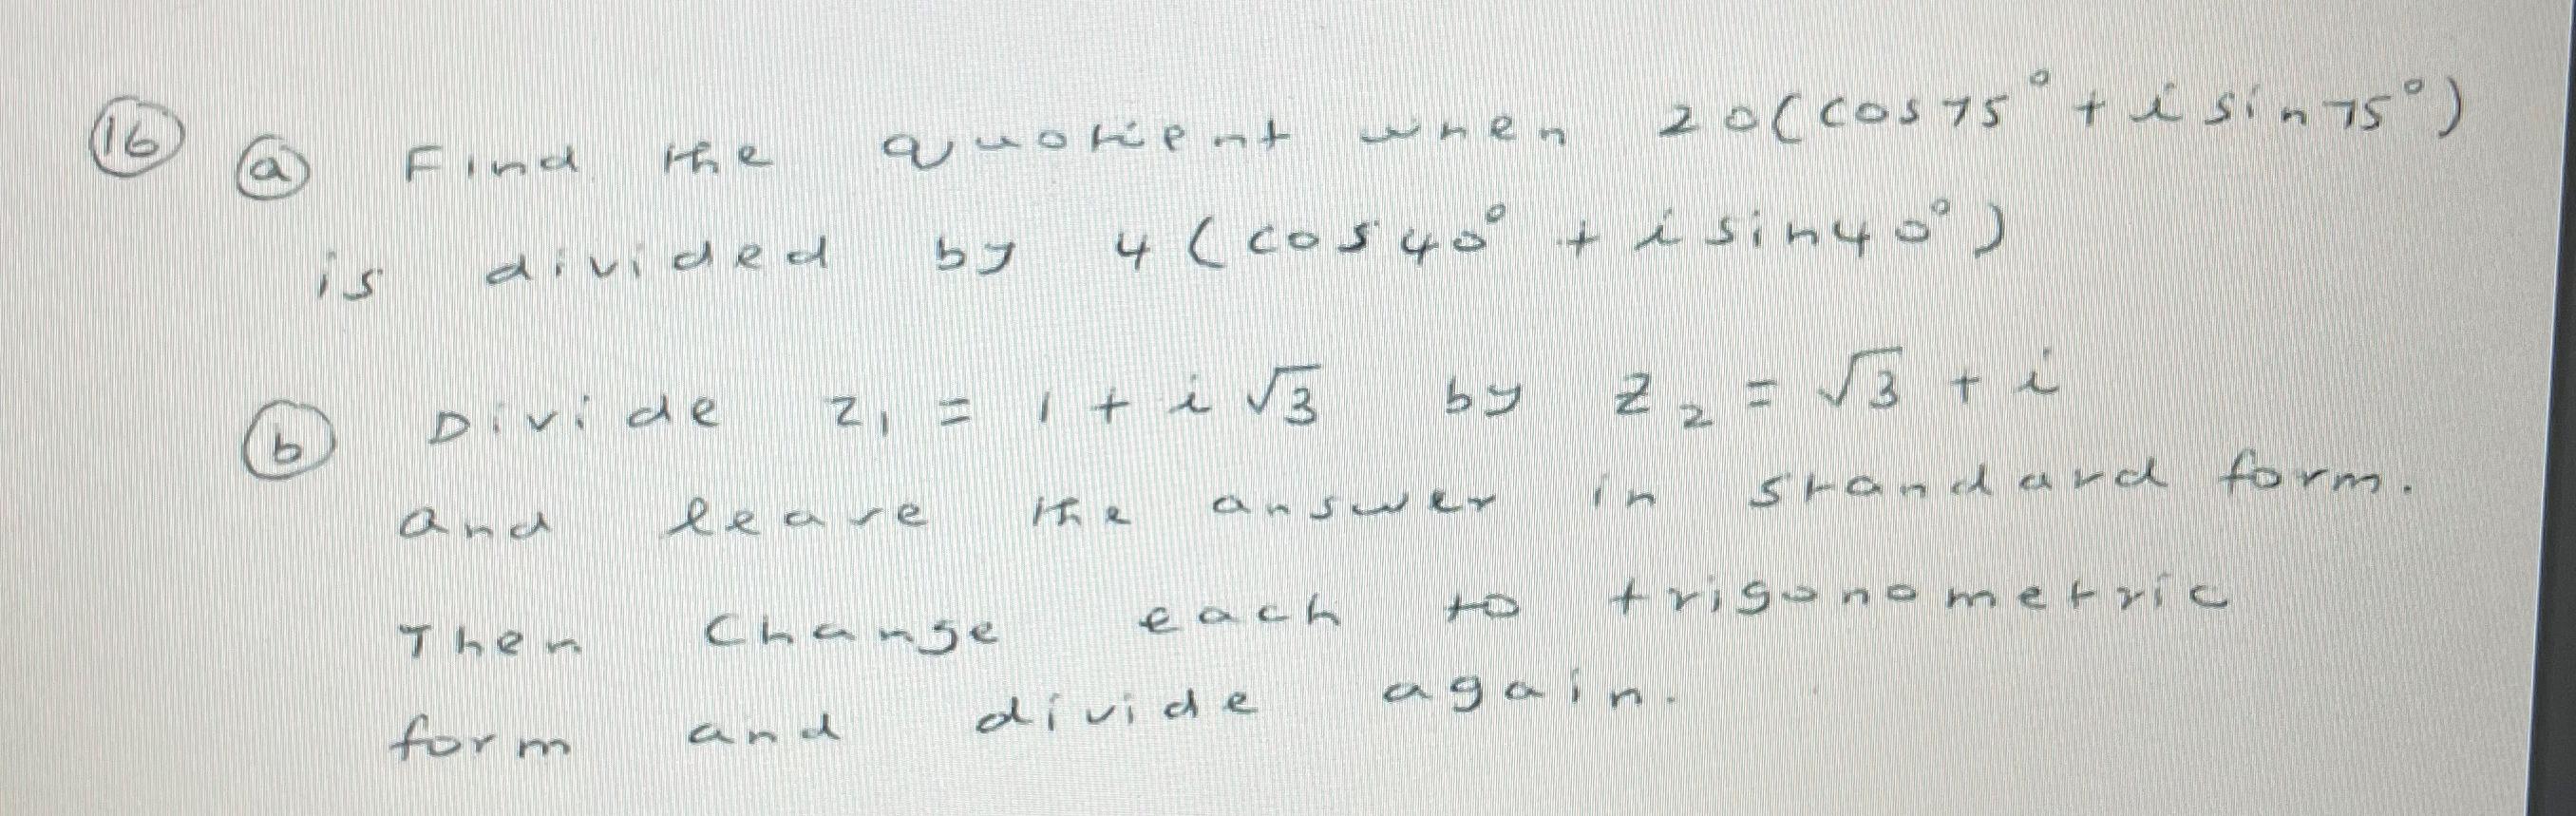 16 a Find the quotient when 20(cos75° + i sin75°)
is divided by 4(cos40° + i sin40°)
b Divide z₁ = 1 + i√3 by z₂ = √3 + i
and leave the answer in standard form.
Then Change each to trigonometric
form and divide again.